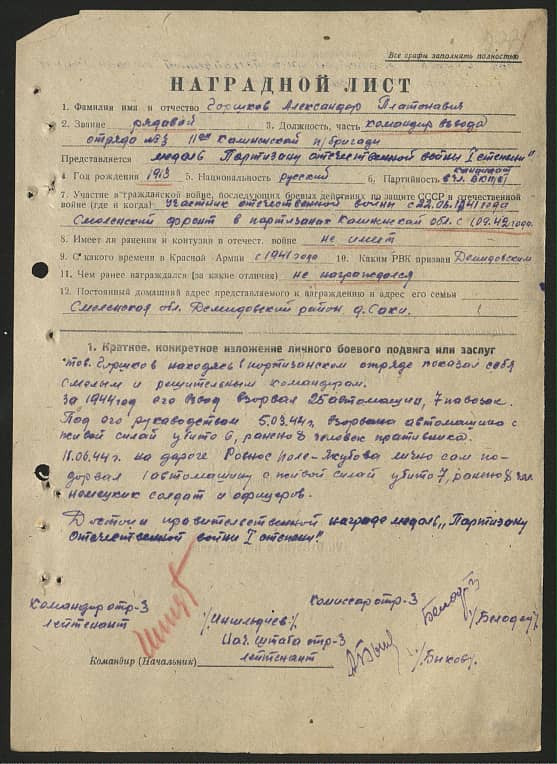 Все графы заполнять полностью
НАГРАДНОЙ ЛИСТ
1. Фамилия имя и отчество Горшков Александр Платонавич
2. Звание рядавой 3. Должность, часть командир взвода
отряда №3 11ой Калининской п/бригади
Представляется медаль „Партизану отечественной войны I степени"
4. Год рождения 1913 5. Национальность русский 6. Партийность кандидат в чл. ВКП(б)
7. Участие в гражданской войне, последующих боевых действиях по защите СССР и отечественной
войне (где и когда) Участник отечественной войни с 22.06.1941 года
Смоленский фронт в партизанах Калининской обл. с 09.42 года.
8. Имеет ли ранения и контузии в отечест. войне не имеет
9. С какого времени в Красной Армии с 1941 года 10. Каким РВК призван Демидовским
11. Чем ранее награждался (за какие отличия) не награждался
12. Постоянный домашний адрес представляемого к награждению и адрес его семьи
Смоленская обл. Демидовский район д. Саки.
1. Краткое, конкретное изложение личного боевого подвига или заслуг
тов. Горшков находясь в партизанском отряде показал себя
Смелым и решительным командиром.
За 1944 год его взвод взорвал 25 автомашин, 7 павозок.
Под его рукаводством 5.03.44 г. взорвана автомашина с
живой силай убито 6, ранено 8 человек пративника.
11.06.44 г. на дароге Ровное поле-Якубова лично сам по-
дорвал 1 автомашину с живой силай убито 7, ранено 8 чел
немецких солдат и офицеров.
Достоин правителественной награде медаль „Партизану
Отечественной войни I степени"
Командир отр-3
лейтенант
Комиссар отр-3
/Белодед/
Нач. штаба отр-3
лейтенант
/Быков/.
Командир (Начальник)